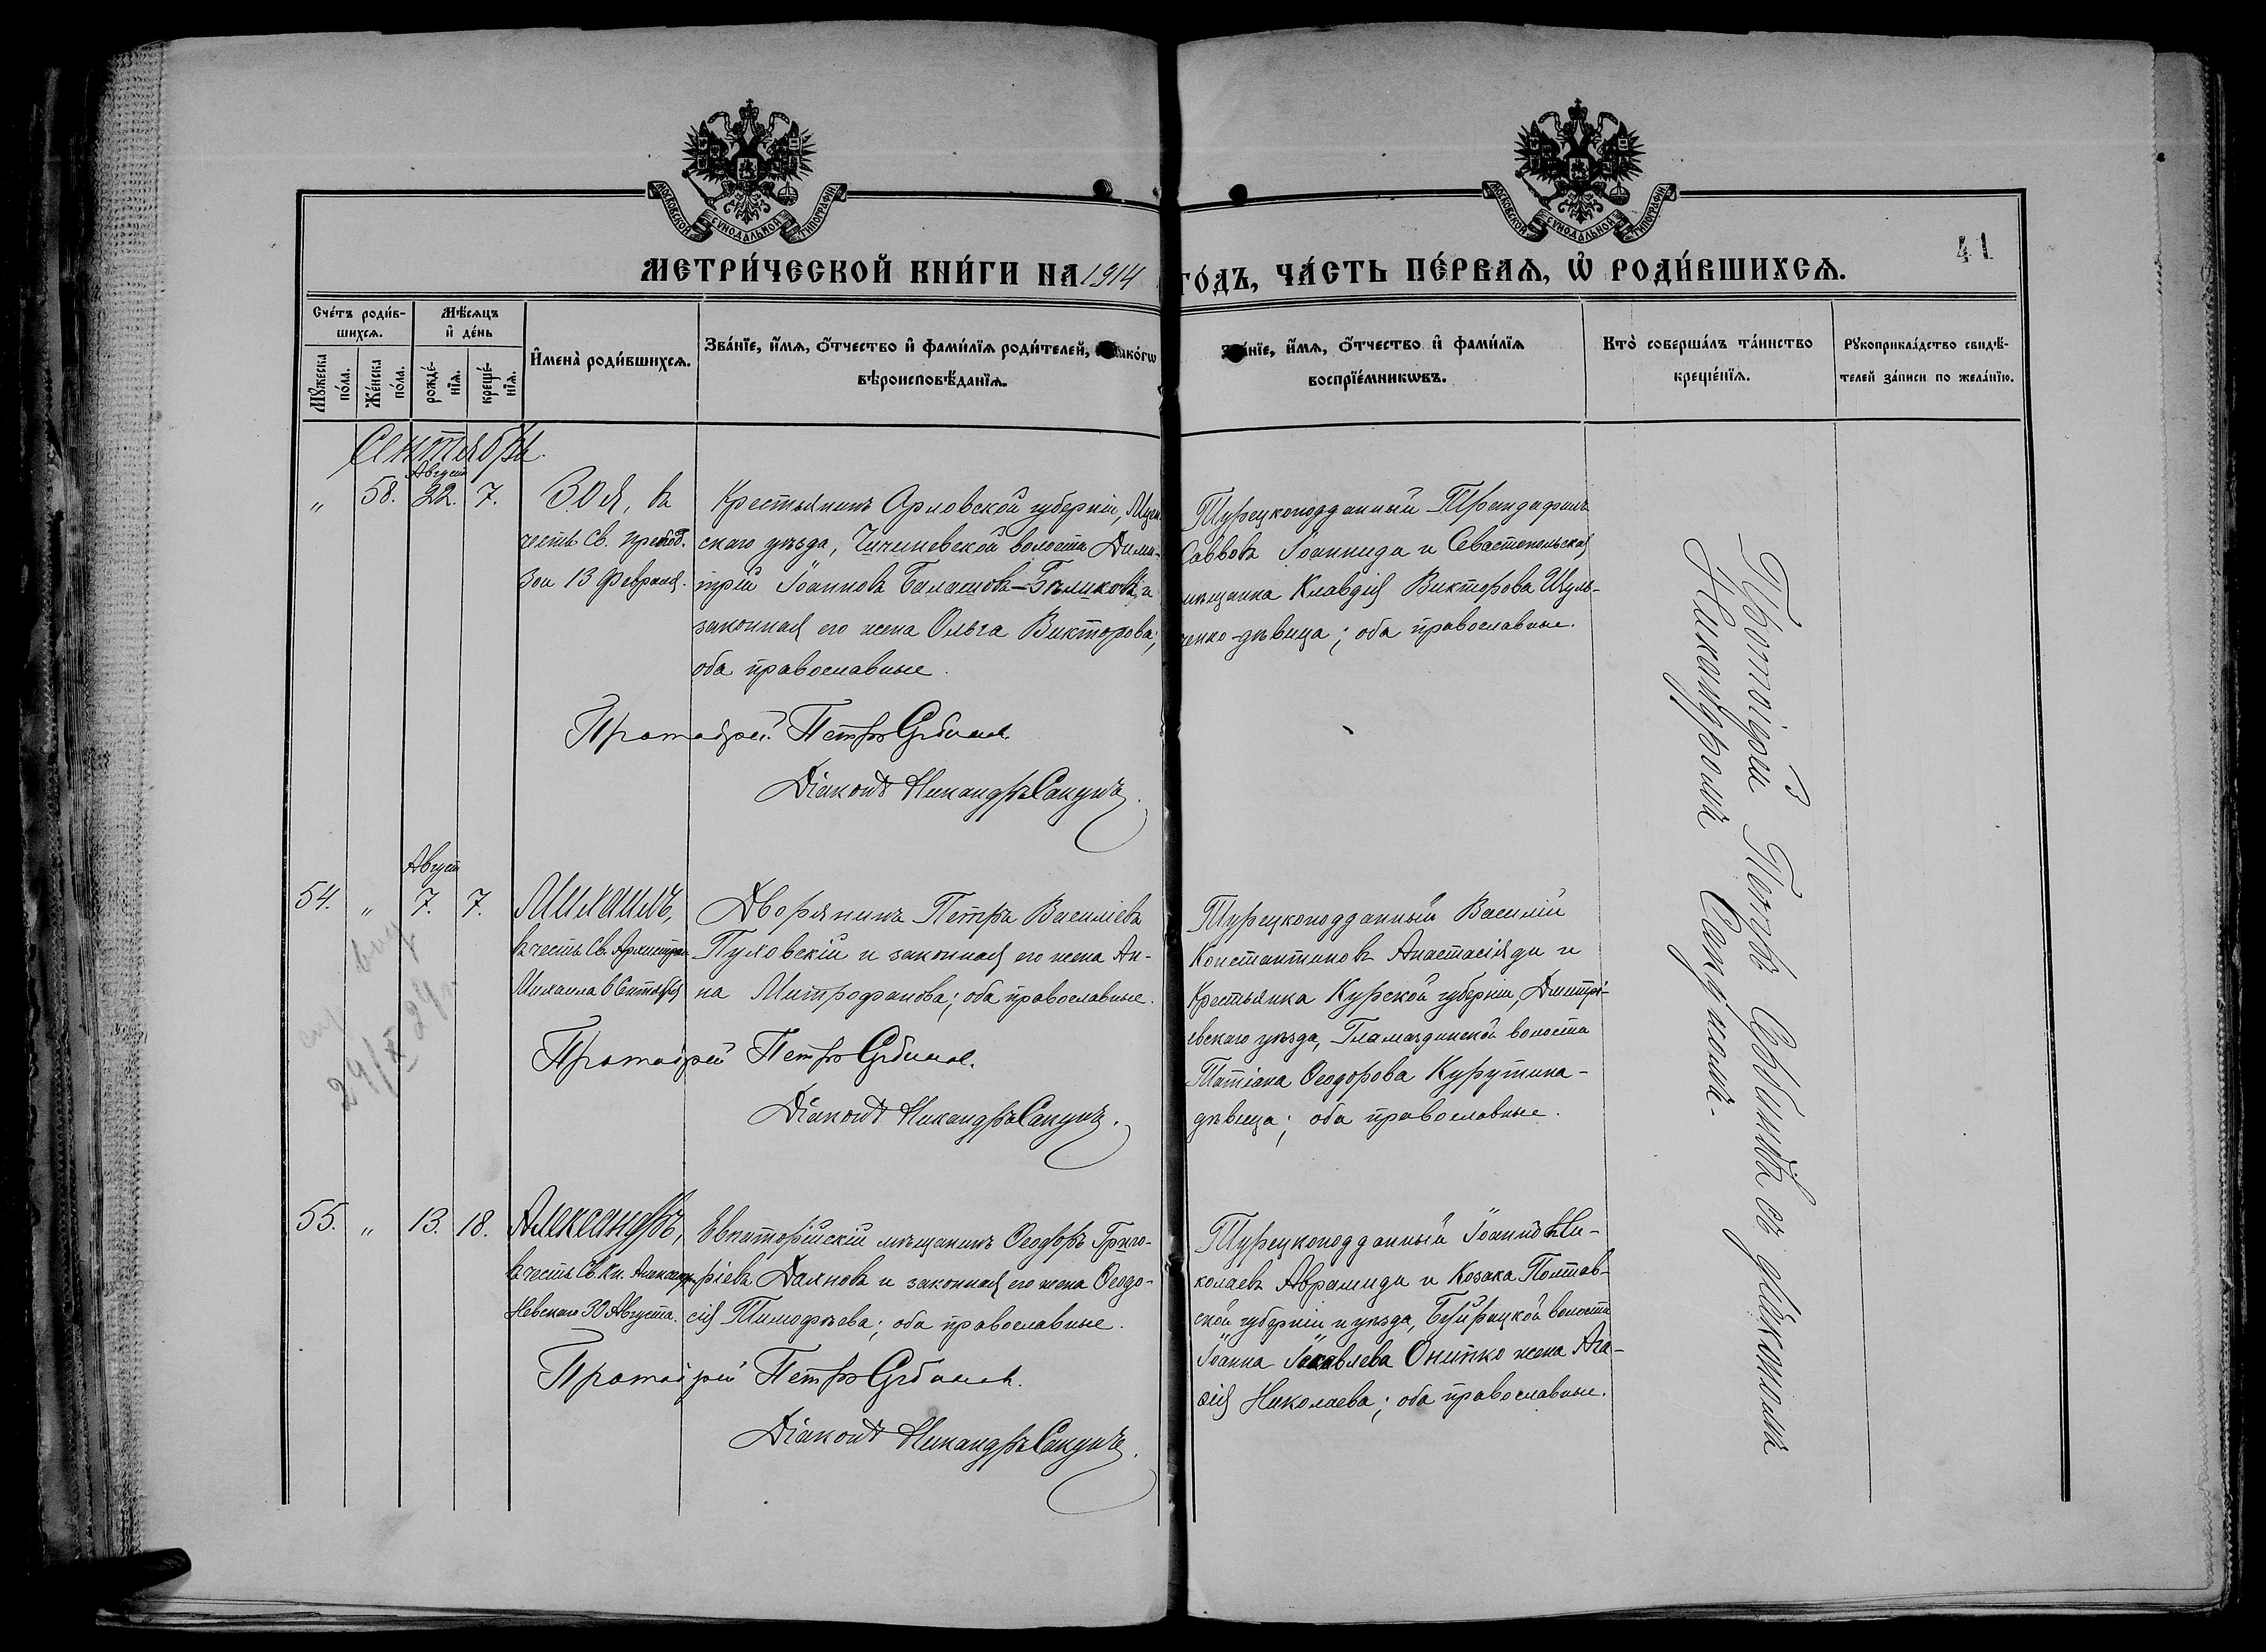 МОСКОВСКОЙ СѴНОДАЛЬНОЙ ТИПОГРАФІИ
МОСКОВСКОЙ СѴНОДАЛЬНОЙ ТИПОГРАФІИ
41
МЕТРИ́ЧЕСКОЙ КНИ́ГИ НА 1914 ГО́ДЪ, ЧА́СТЬ ПЕ́РВАѦ, Ѡ҆ РОДИ́ВШИХСѦ.
Сче́тъ роди́в-
шихсѧ.
Мѣ́сѧцъ
и҆ де́нь
Мꙋ́жеска
по́ла.
Же́нска
по́ла.
рожде́-
нїѧ.
креще́-
нїѧ.
И҆мена̀ роди́вшихсѧ.
Зва́нїе, и҆́мѧ, ѻ҆́тчество и҆ фами́лїѧ роди́телей, и҆ како́гѡ
вѣроисповѣ́данїѧ.
Зва́нїе, и҆́мѧ, ѻ҆́тчество и҆ фами́лїѧ
воспрїе́мникѡвъ.
Кто̀ соверша́лъ та́инство
креще́нїѧ.
Рꙋкоприкла́дство свидѣ́-
телей за́писи по жела́нїю.
Сентября.
Август
„ 58. 22. 7.
Зоя, въ
честь Св. препод.
Зои 13 Февраля.
Крестьянинъ Орловской губерніи, Мцен-
скаго уѣзда, Чичиневской волости Дими-
трій Іоанновъ Балашовъ-Бѣликовъ, и
законная его жена Ольга Викторова;
оба православные.
Протоіерей Петръ Сербиновъ.
Діаконъ Никандръ Сакунъ.
Турецкоподданный Трандафилъ
Саввовъ Іоаннида и Севастопольская
мѣщанка Клавдія Викторова Шуль-
ченко-дѣвица; оба православные.
Август
54. „ 7. 7.
Михаилъ,
въ честь Св. Архистрат.
Михаила 6 Сентября
Дворянинъ Петръ Василіевъ
Пуховскій и законная его жена Ан-
на Митрофанова; оба православные.
Протоіерей Петръ Сербиновъ.
Діаконъ Никандръ Сакунъ.
29/X 24 г.
Турецкоподданный Василій
Константиновъ Анастасіяди и
Крестьянка Курской губерніи, Дмитрі-
евскаго уѣзда, Гламаздинской волости
Татіана Ѳеодорова Курутина-
дѣвица; оба православные.
55. „ 13. 18.
Александръ,
въ честь Св. Кн. Александра
Невскаго 30 Августа.
Евпаторійскій мѣщанинъ Ѳеодоръ Григо-
ріевъ Даяновъ и законная его жена Ѳеодо-
сія Тимофѣева; оба православные.
Протоіерей Петръ Сербиновъ.
Діаконъ Никандръ Сакунъ.
Турецкоподданный Іоаннъ Ни-
колаевъ Аврамиди и Козака Полтав-
ской губерніи и уѣзда, Буйрацкой волости
Іоанна Іаковлева Онипко жена Ага-
ѳія Николаева; оба православные.
Протоіерей Петръ Сербиновъ съ діакономъ
Никандромъ Сакуномъ.